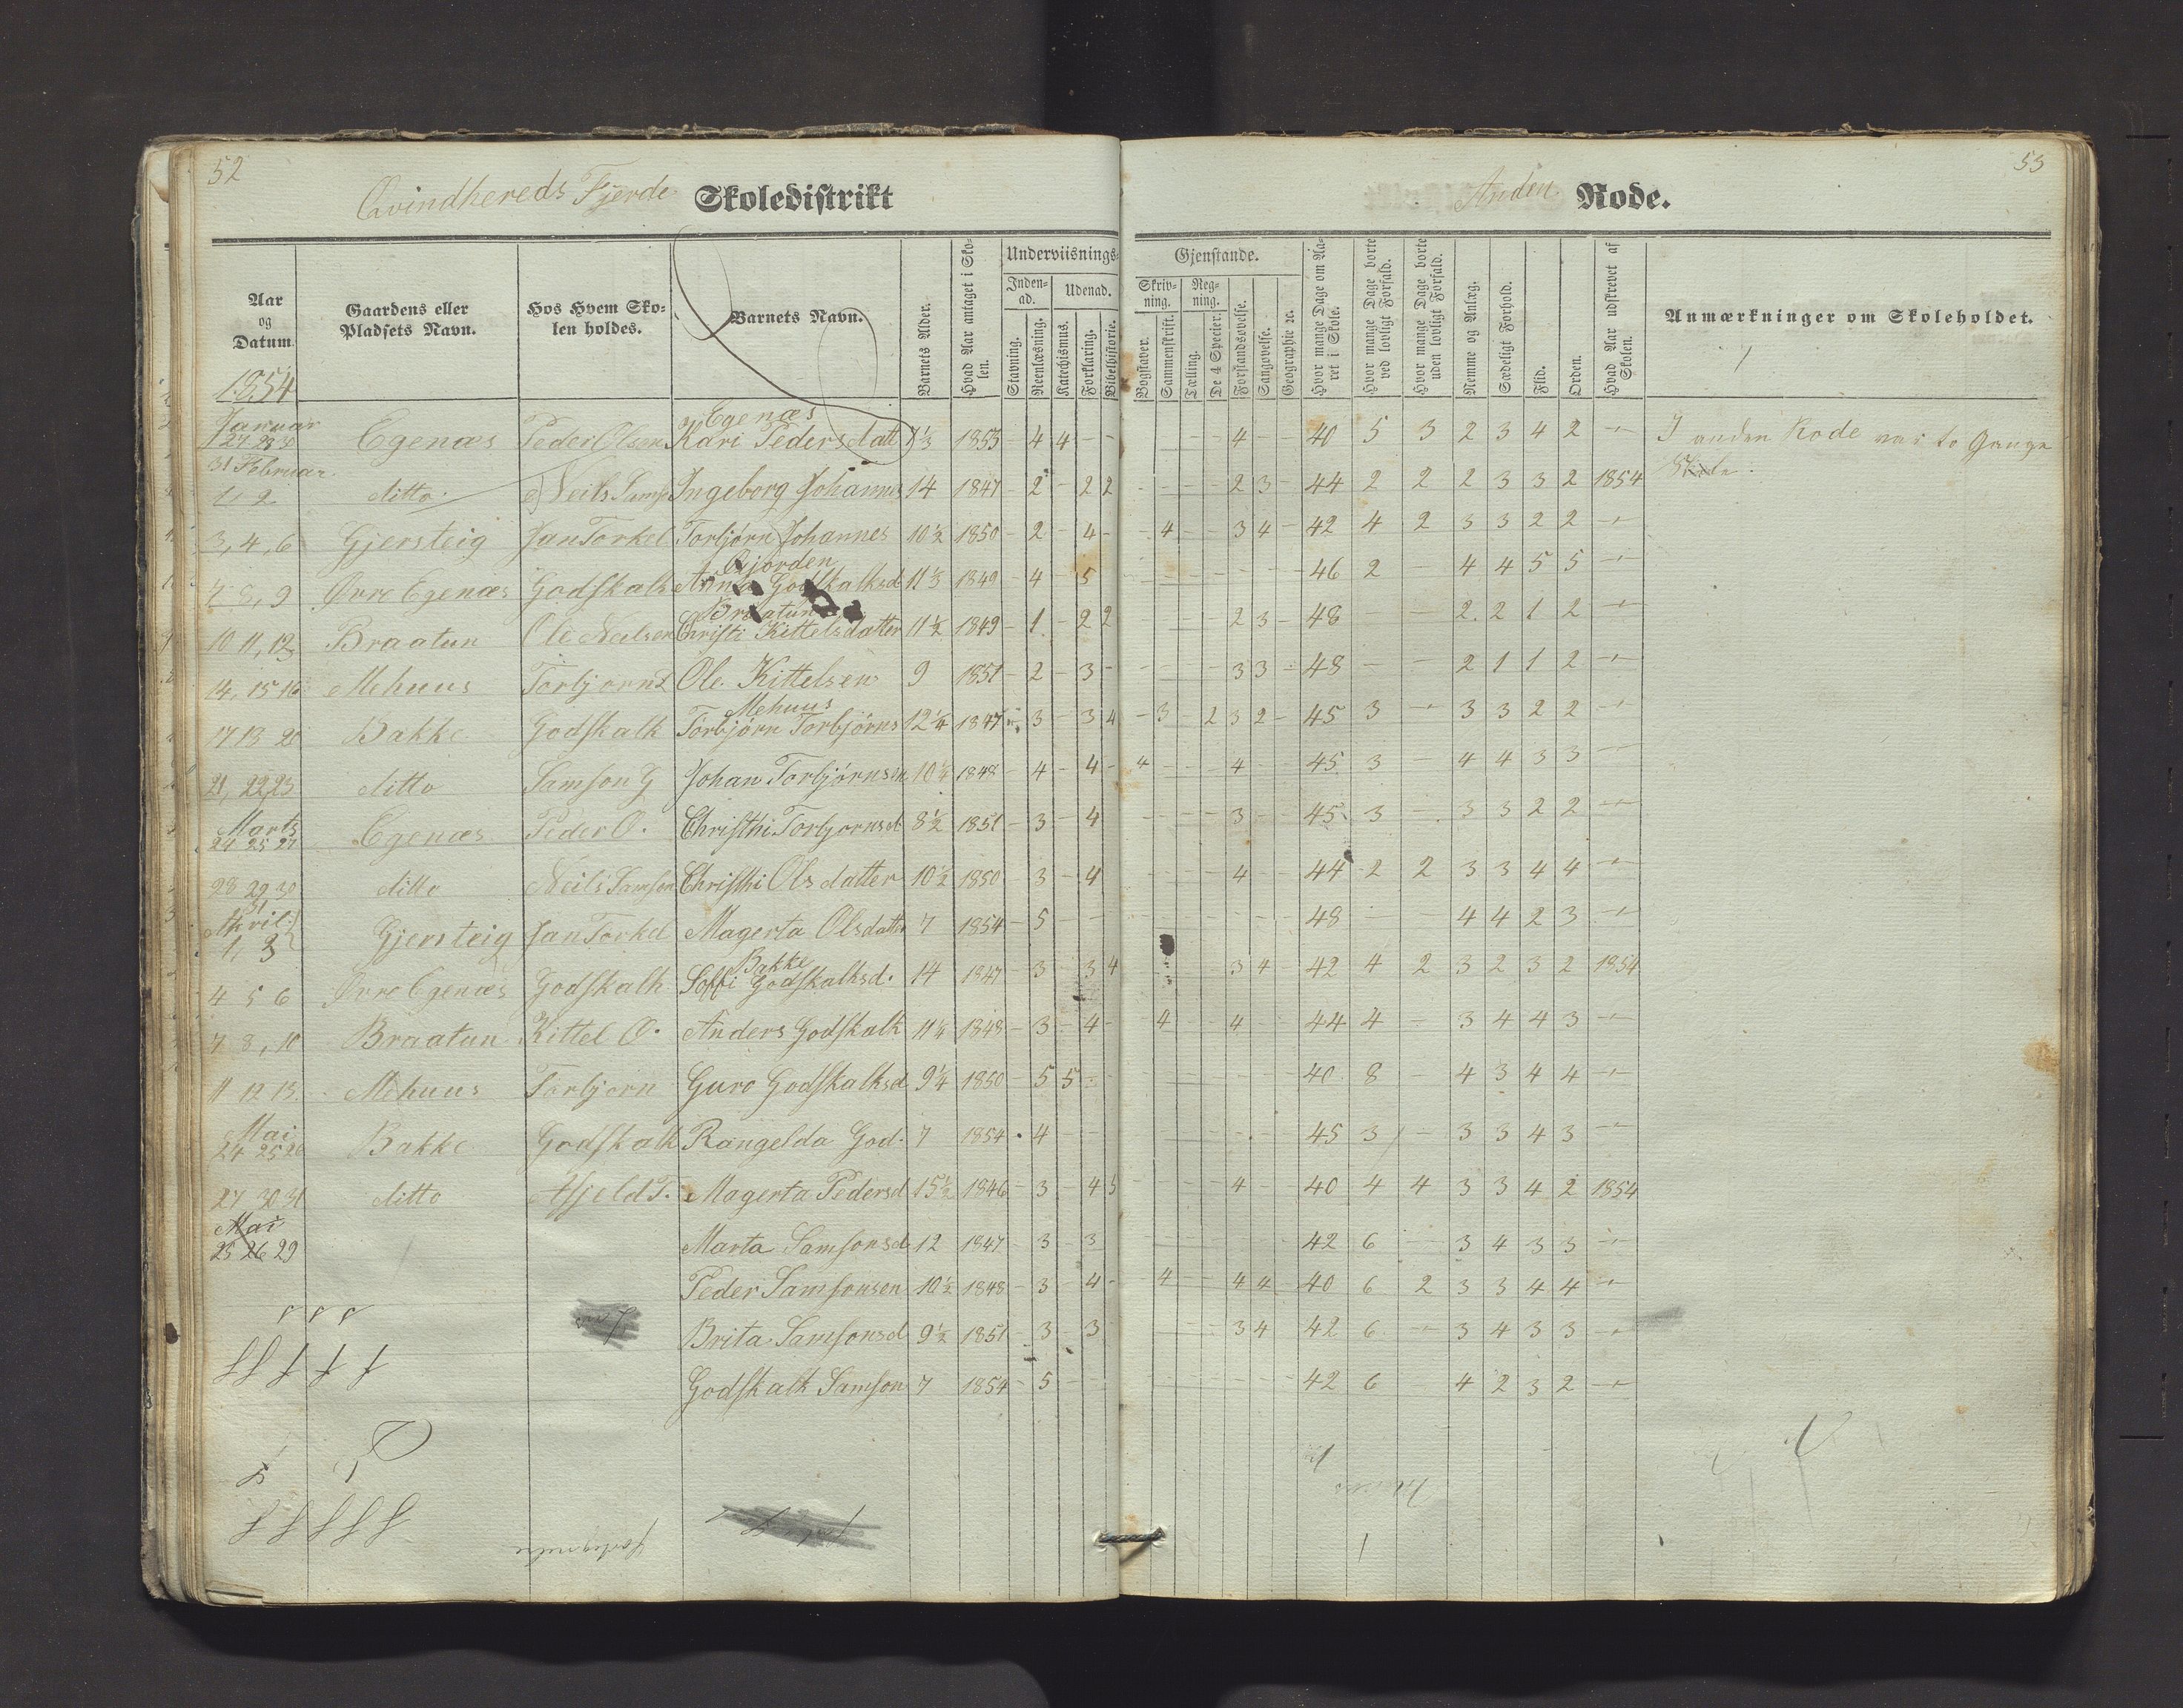 52
Qvindhereds Fjerde Skoledistrikt
Aar og Datum.
Gaardens eller Pladsets Navn.
Hos Hvem Skolen holdes.
Barnets Navn.
Barnets Alder.
Hvad Aar antaget i Skolen.
Underviisnings-
Inden-ad.
Udenad.
Stavning.
Reenlæsning.
Katechismus.
Forklaring.
Bibelhistorie.
1854
Januar Egenæs
27 28 30 Egenæs Peder Olsen Kari Pedersdatt 1853 - 4 4 - -
31 Februar
1, 2 ditto Neils Samso Ingeborg Johannes 14 1847 - 2 - 2 2
3, 4, 6 Gjersteig Jan Torkel Torbjørn Johannes 10 1/2 1850 - 2 - 4 -
Gjorden
7 8, 9 Øvre Egenæs Godskalk Anna Godskalksd 11 1/3 1849 - 4 - 5
Braatun
10 11, 13 Braatun Ole Neelsen Christi Kittelsdatter 11 1/2 1849 - 1 - 2 2
14, 15 16 Mehuus Torbjorn Ole Kittelsen 9 1851 - 2 - 3 -
Mehuus
17 18 20 Bakke Godskalk Torbjørn Torbjörns 12 1/4 1847 3 - 3 4
21, 22 23 ditto Samson G Johan Torbjörnsen 10 1/4 1848 - 4 - 4 -
Marts
24 25 27 Egenæs Peder O. Christhi Torbjornsd 8 1/2 1851 - 3 - 4
28 29 30 ditto Neils Samson Christhi Olsdatter 10 1/2 1850 - 3 - 4
31 April
1, 3 Gjersteig Jan Torkel Magerta Olsdatter 7 1854 - 5 - -
Bakke
4 5 6 Øvre Egenæs Godskalk Soffi Godskalksd. 14 1847 - 3 - 3 4
7 8, 10 Braatun Kittel O. Anders Godskalk 11 1/4 1848 - 3 - 4 -
11 12 13 Mehuus Torbjorn Guro Godskalksd 9 1/4 1850 - 5 5
Mai
24 25 26 Bakke Godskalk Rangelda God. 7 1854 4 - -
27 30 31 ditto Afjeld T. Magerta Pedersd 15 1/2 1846 - 3 - 4 5
Mai
25 26 29 Marta Samsonsd 12 1847 - 3 - 3
Peder Samsonsen 10 1/2 1848 - 3 - 4 -
Brita Samsonsd 9 1/2 1851 - 3 - 3
Godskalk Samson 7 1854 - 5 -
53
Anden Rode.
Gjenstande.
Skrivning.
Regning.
Bogstaver.
Sammenskrift.
Tælling.
De 4 Specier.
Forstandsøvelse.
Sangøvelse.
Geographie ɾc.
Hvor mange Dage om Aaret i Skole.
Hvor mange Dage borte ved lovligt Forfald.
Hvor mange Dage borte uden lovligt Forfald.
Nemme og Anlæg.
Sædeligt Forhold.
Flid.
Orden.
Hvad Aar udskrevet af Skolen.
Anmærkninger om Skoleholdet.
4 - - 40 5 3 2 3 4 2 - I anden Rode var to Gange
2 3 - 44 2 2 2 3 3 2 1854 Skole
4 - - 3 4 - 42 4 2 3 3 2 2 -
46 2 - 4 4 5 5 -
2 3 - 48 - - 2 2 1 2 -
3 3 - 48 - - 2 1 1 2 -
3 - 2 3 2 - 45 3 - 3 3 2 2 -
4 - - - 4 - - 45 3 - 4 4 3 3 -
3 - - 45 3 - 3 3 2 2 -
4 - - 44 2 2 3 3 4 4 -
48 - - 4 4 2 3 -
3 4 - 42 4 2 3 2 3 2 1854
4 - - 4 - - 44 4 - 3 4 4 3 -
40 8 - 4 3 4 4 -
45 3 - 3 3 4 3 -
4 - - 40 4 4 3 3 4 2 1854
42 6 - 3 4 3 3 -
4 - - 4 4 - 40 6 2 3 3 4 4 -
3 4 42 6 - 3 4 3 3 -
42 6 4 2 3 2 -